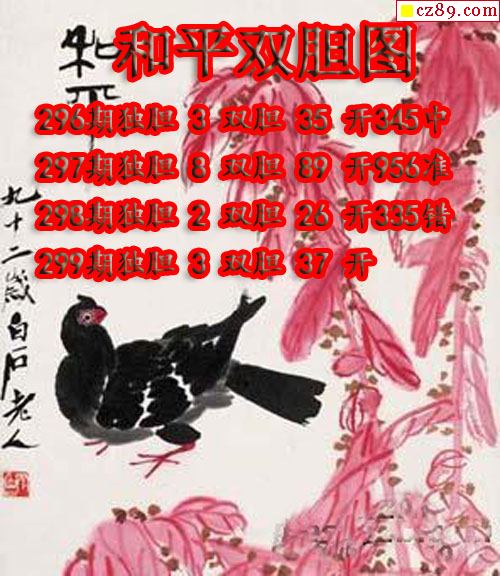 cz89.com
和平双胆图
296期独胆 3 双胆 35 开345中
297期独胆 8 双胆 89 开956准
298期独胆 2 双胆 26 开335错
299期独胆 3 双胆 37 开
和平
九十二岁白石老人